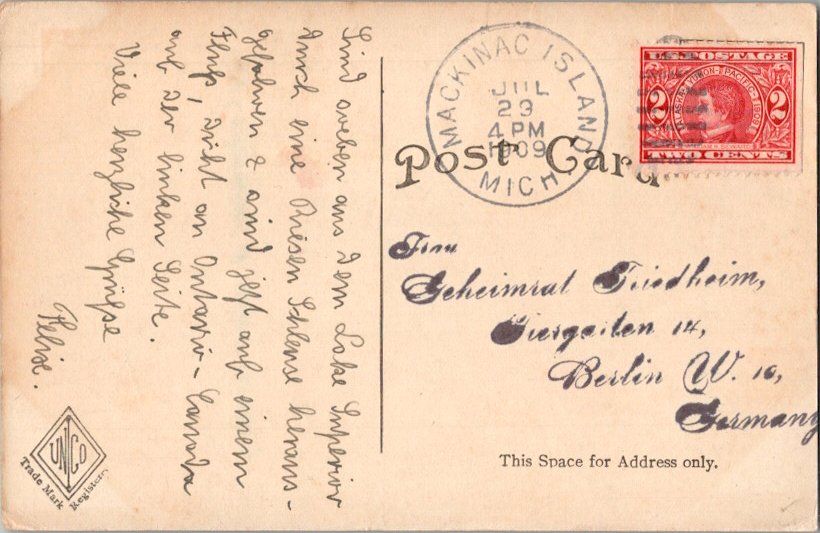 Sind soeben aus dem Lake Superior
durch eine Riesen Schleuse heraus-
gefahren & sind jetzt auf einem
Fluß, dicht an Ontario-Canada
auf der linken Seite.
Viele herzliche Grüße
Felix.
UNCO
Trade Mark
Registered
MACKINAC ISLAND
JUL
29
4 PM
1909
MICH
U.S. POSTAGE
ALASKA-YUKON-PACIFIC 1909
2 2
TWO CENTS
Post Card
Frau
Geheimrat Friedheim,
Tiergarten 14,
Berlin W. 10,
Germany
This Space for Address only.